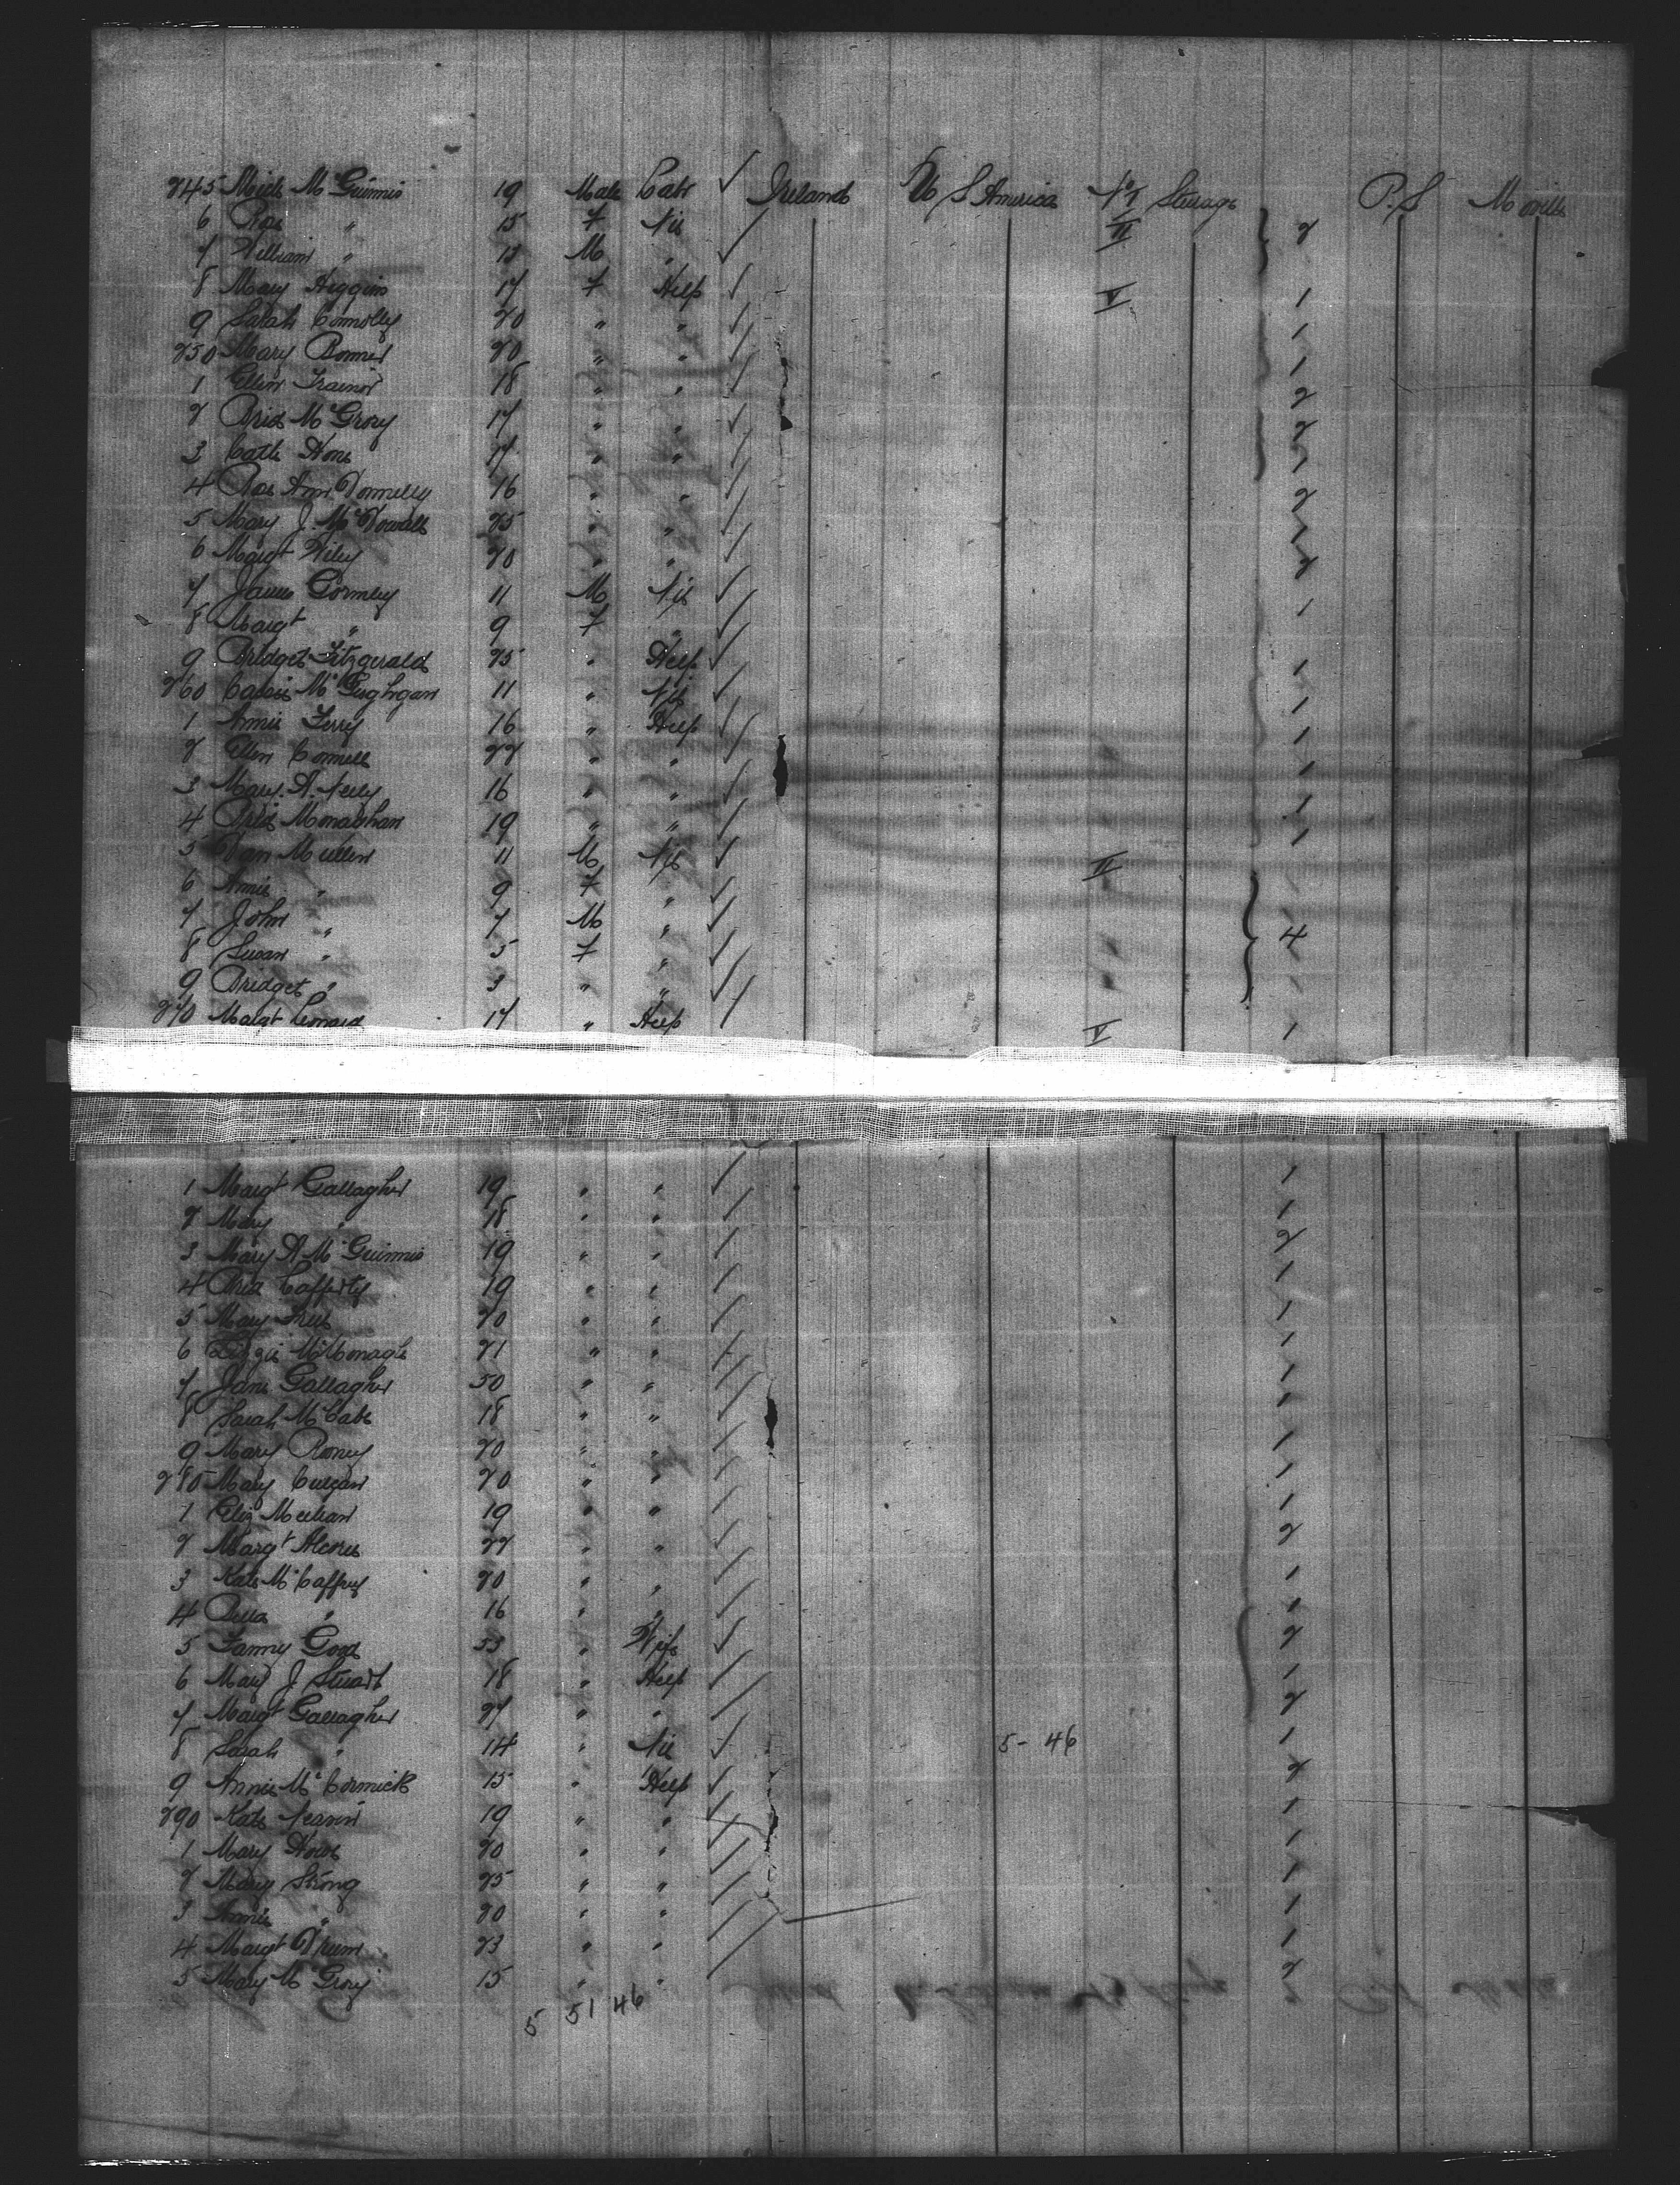 245 Mich McGuinnis 19 Male Labr ✓ Ireland U S America N.Y. Steerage P.S Moville
6 Rose " 15 F Nil ✓ II 2
7 William " 13 M " ✓
8 Mary Higgins 17 F Help ✓ V 1
9 Sarah Connolly 20 " " ✓ 1
250 Mary Bonner 20 " " ✓ 1
1 Ellen Trainor 18 " " ✓ 2
2 Brid McGrory 17 " " ✓ 2
3 Cath 17 " " ✓ 1
4 Rose Ann Donnelly 16 " " ✓ 2
5 Mary J. McDowall 25 " " ✓ 1
6 Margt 20 " " ✓ 2
7 James Gormley 11 M Nil ✓ 1
8 Margt " 9 F " ✓
9 Bridget Fitzgerald 25 " Help ✓ 1
260 Cassie McGeghgan 11 " Nil ✓ 1
1 Annie Terry 16 " Help ✓ 1
2 Ellen Connell 22 " " ✓ 1
3 Mary. A. Neely 16 " " ✓ 1
4 Brid Monaghan 19 " " ✓ 1
5 Dan Mullen 11 M Nil ✓ II
6 Annie " 9 F " ✓
7 John " 7 M " ✓ 4
8 Susan " 5 F " ✓
9 Bridget " 3 " " ✓
270 Margt Leonard 17 " Help ✓ V 1
1 Margt Gallagher 19 " " ✓ 1
2 Mary " 18 " " ✓ 1
3 Mary A McGuinnis 19 " " ✓ 2
4 Brid Cafferty 19 " " ✓ 1
5 Mary 20 " " ✓ 1
6 Lizzie McMonagle 21 " " ✓ 1
7 Jane Gallagher 50 " " ✓ 1
8 Sarah McCabe 18 " " ✓ 1
9 Mary Roney 20 " " ✓ 1
280 Mary 20 " " ✓ 1
1 Eliz 19 " " ✓ 1
2 Margt 22 " " ✓ 2
3 Kate McCaffrey 20 " " ✓ 1
4 Bella " 16 " " ✓ 1
5 Fanny 53 " Wife ✓ 2
6 Mary J Stuart 18 " Help ✓ 1
7 Margt Gallagher 27 " " ✓ 2
8 Sarah " 14 " Nil ✓ 5 - 46 1
9 Annie McCormick 15 " Help ✓ 2
290 Kate 19 " " ✓ 1
1 Mary 20 " " ✓ 1
2 Mary Strong 25 " " ✓ 1
3 Annie " 20 " " ✓ 1
4 Margt 23 " " ✓ 1
5 Mary McGrory 15 " " ✓ 2
5 51 46